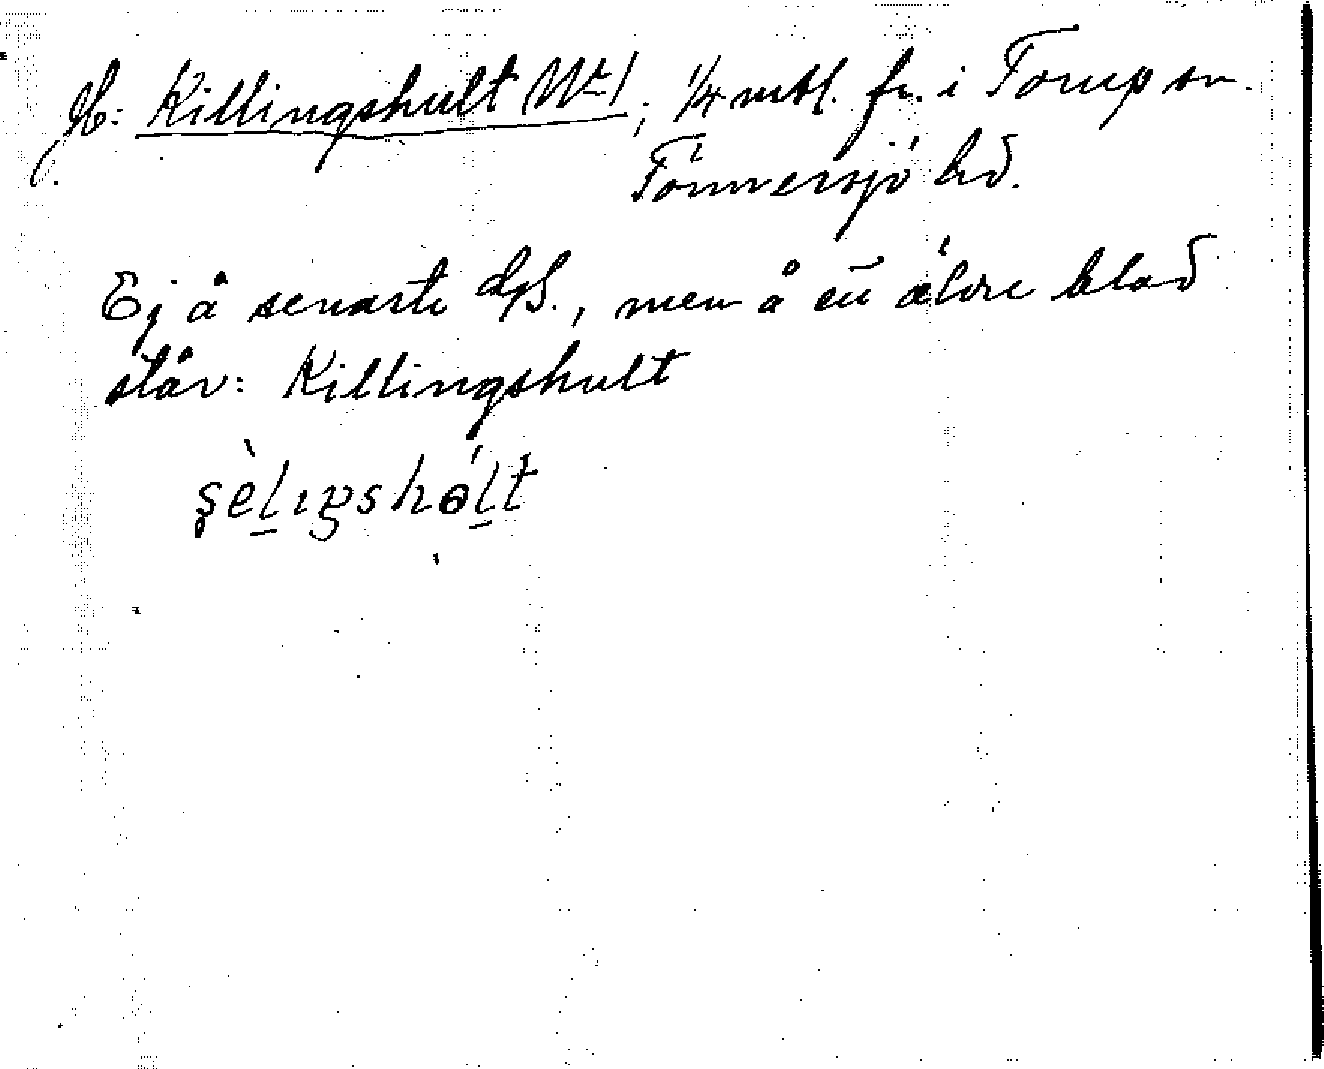 Killingshult No 1, 1/4 mtl. fr. i Torup sn.
Tönnersjö hd.
Ej å senaste dpl., men å ett äldre blad
står: Killingshult